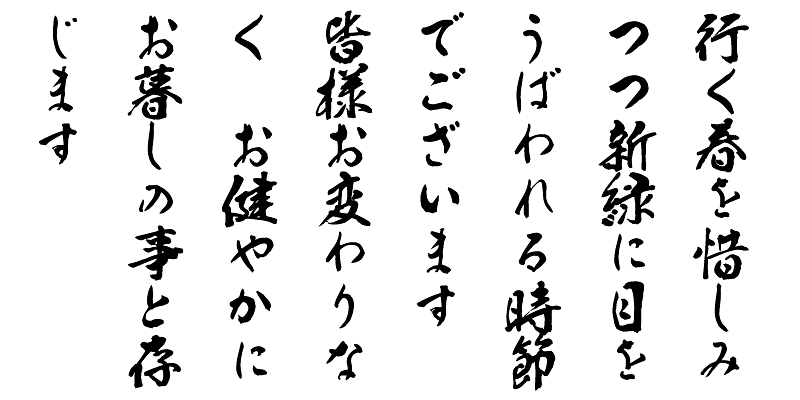 行く春を惜しみ
つつ新緑に目を
うばわれる時節
でございます
皆様お変わりな
く　お健やかに
お暮しの事と存
じます